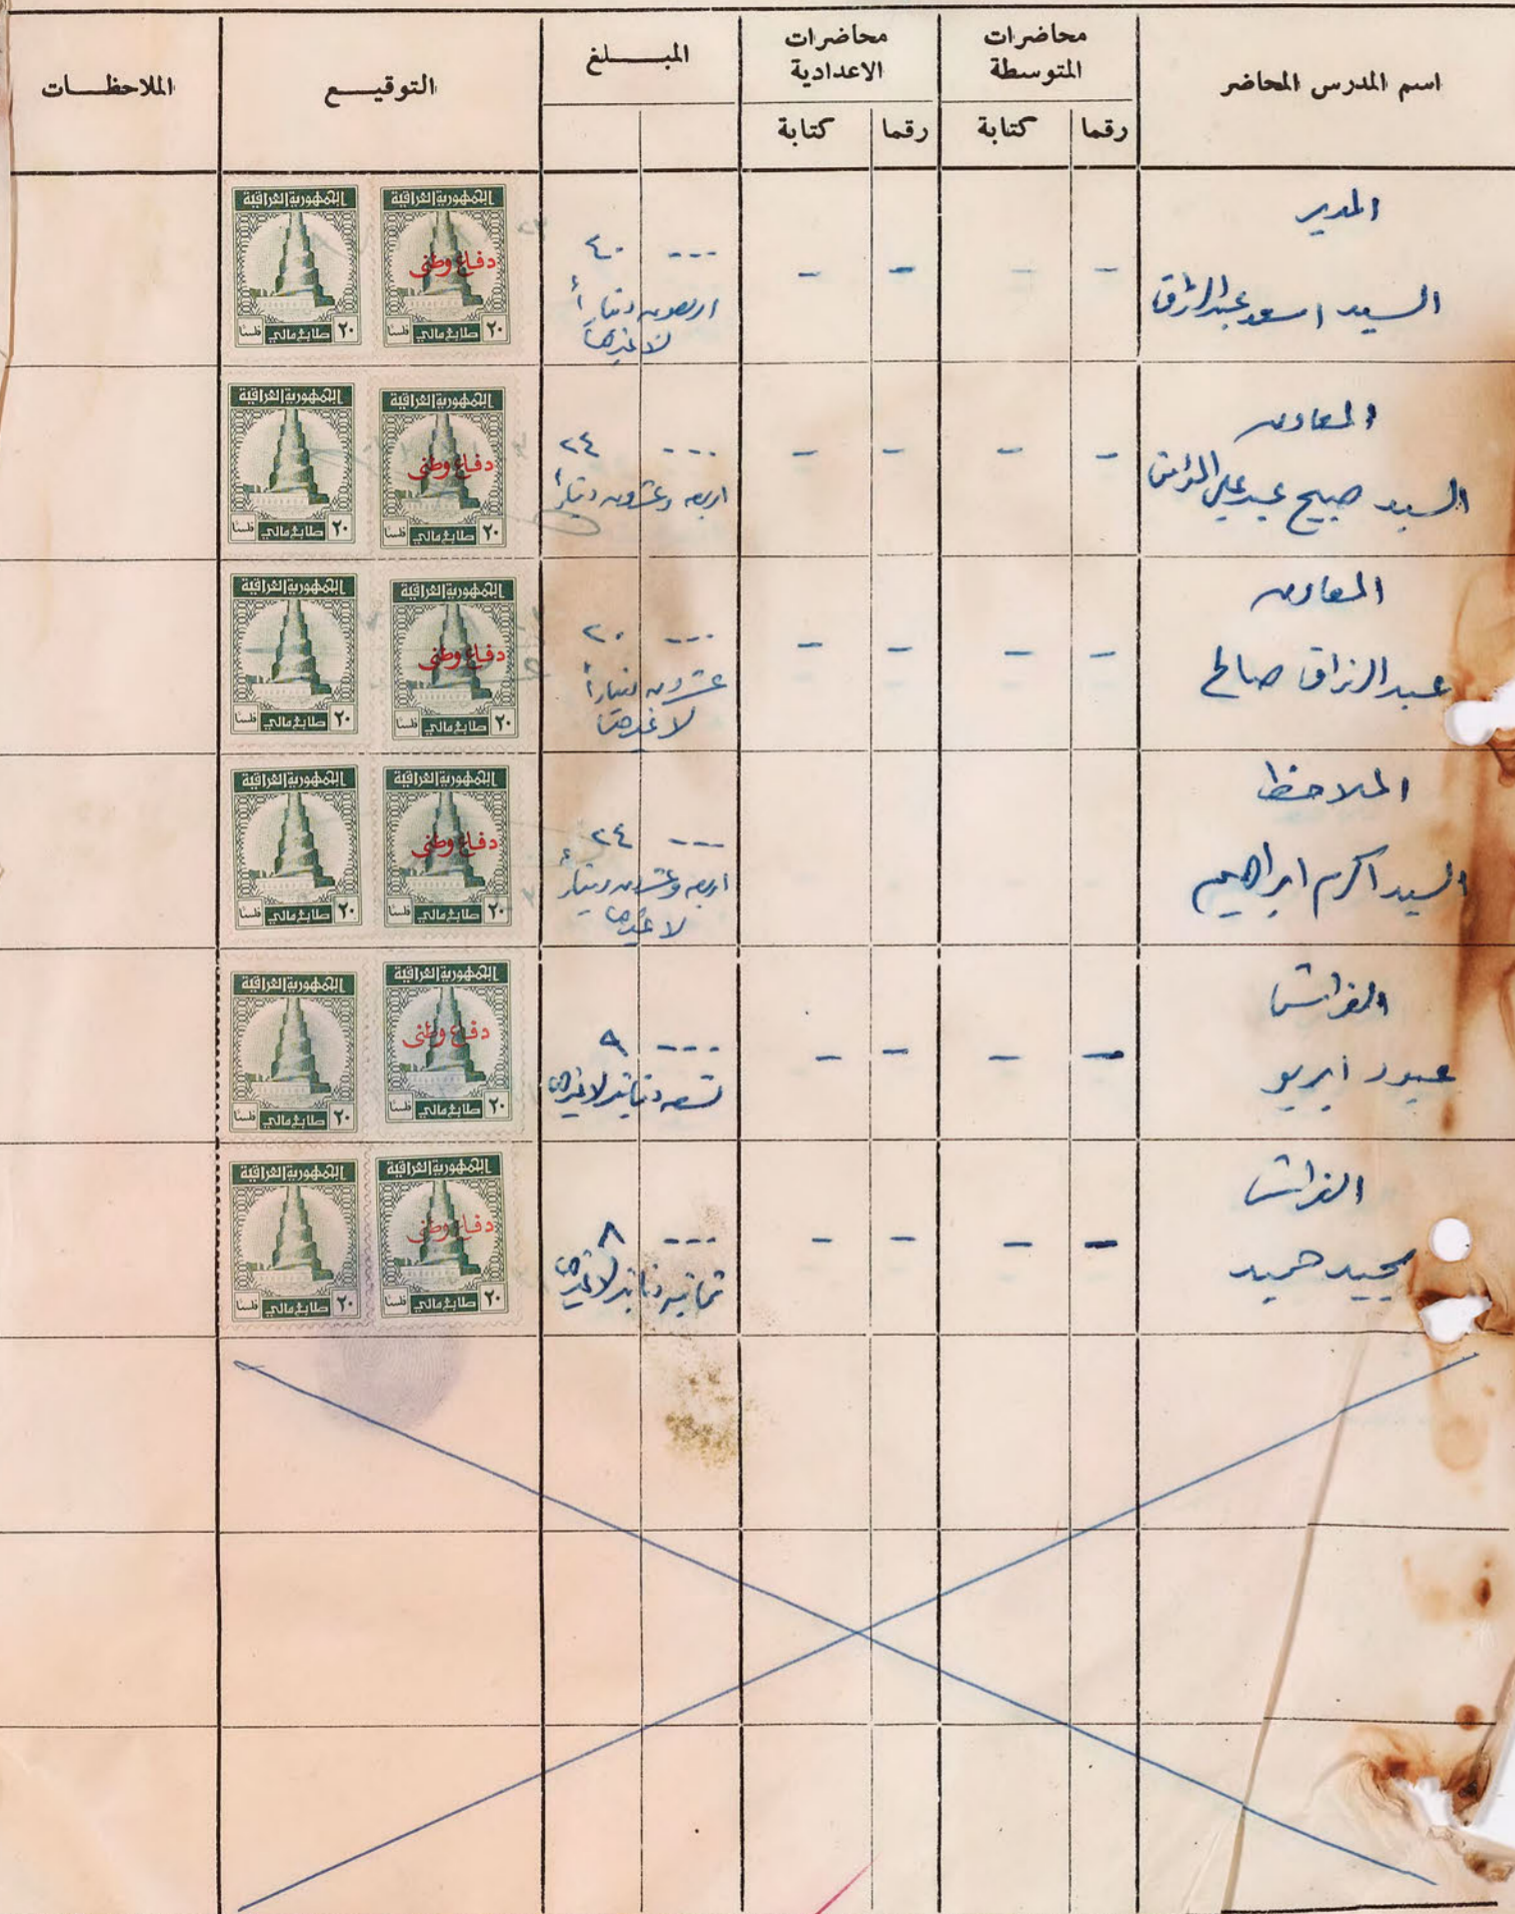 اسم المدرس المحاضر
محاضرات المتوسطة
محاضرات الاعدادية
المبـــلغ
التوقيـــع
الملاحظـــات
رقما
كتابة
رقما
كتابة
المدير
السيد اسعد عبدالرزاق
-
-
-
-
---
٤٠
اربعون ديناراً
لا غيرها
الجمهورية العراقية
دفاع وطني
٢٠ طابع مالي فلسا
الجمهورية العراقية
٢٠ طابع مالي فلسا
المعاون
السيد صبيح عبد علي
-
-
-
-
---
٢٤
اربعه وعشرون ديناراً
الجمهورية العراقية
دفاع وطني
٢٠ طابع مالي فلسا
الجمهورية العراقية
٢٠ طابع مالي فلسا
المعاون
عبد الرزاق صالح
-
-
-
-
---
٢٠
عشرون ديناراً
لا غيرها
الجمهورية العراقية
دفاع وطني
٢٠ طابع مالي فلسا
الجمهورية العراقية
٢٠ طابع مالي فلسا
الملاحظ
السيد اكرم ابراهيم
---
٢٤
اربعه وعشرون ديناراً
لا غيرها
الجمهورية العراقية
دفاع وطني
٢٠ طابع مالي فلسا
الجمهورية العراقية
٢٠ طابع مالي فلسا
الفراش
عبود
-
-
-
-
---
٩
تسعه دنانير لا غيرها
الجمهورية العراقية
دفاع وطني
٢٠ طابع مالي فلسا
الجمهورية العراقية
٢٠ طابع مالي فلسا
الفراش
مجيد حميد
-
-
-
-
---
٨
ثمانيه دنانير لا غيرها
الجمهورية العراقية
دفاع وطني
٢٠ طابع مالي فلسا
الجمهورية العراقية
٢٠ طابع مالي فلسا